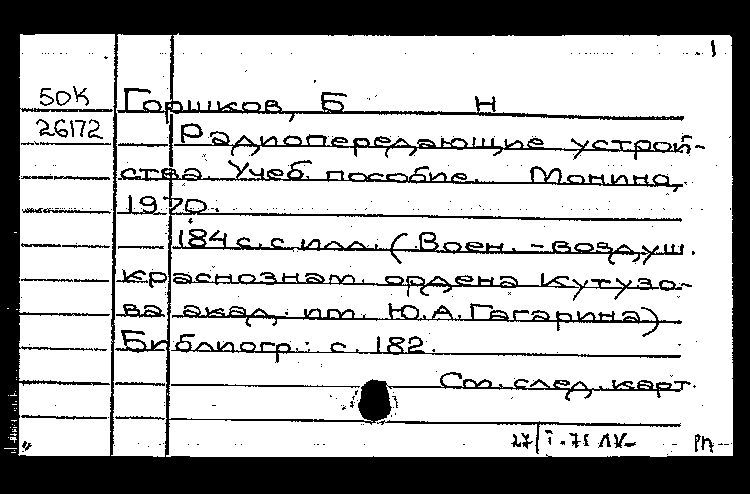 1
50К Горшков, Б Н
26172 Радиопередающие устрой-
ства. Учеб. пособие. Монино,
1970.
184 с. с илл. (Воен. -воздуш.
краснознам. ордена Кутузо-
ва акад. им. Ю.А.Гагарина)
Библиогр.: с. 182.
См. след. карт.
27/I-71